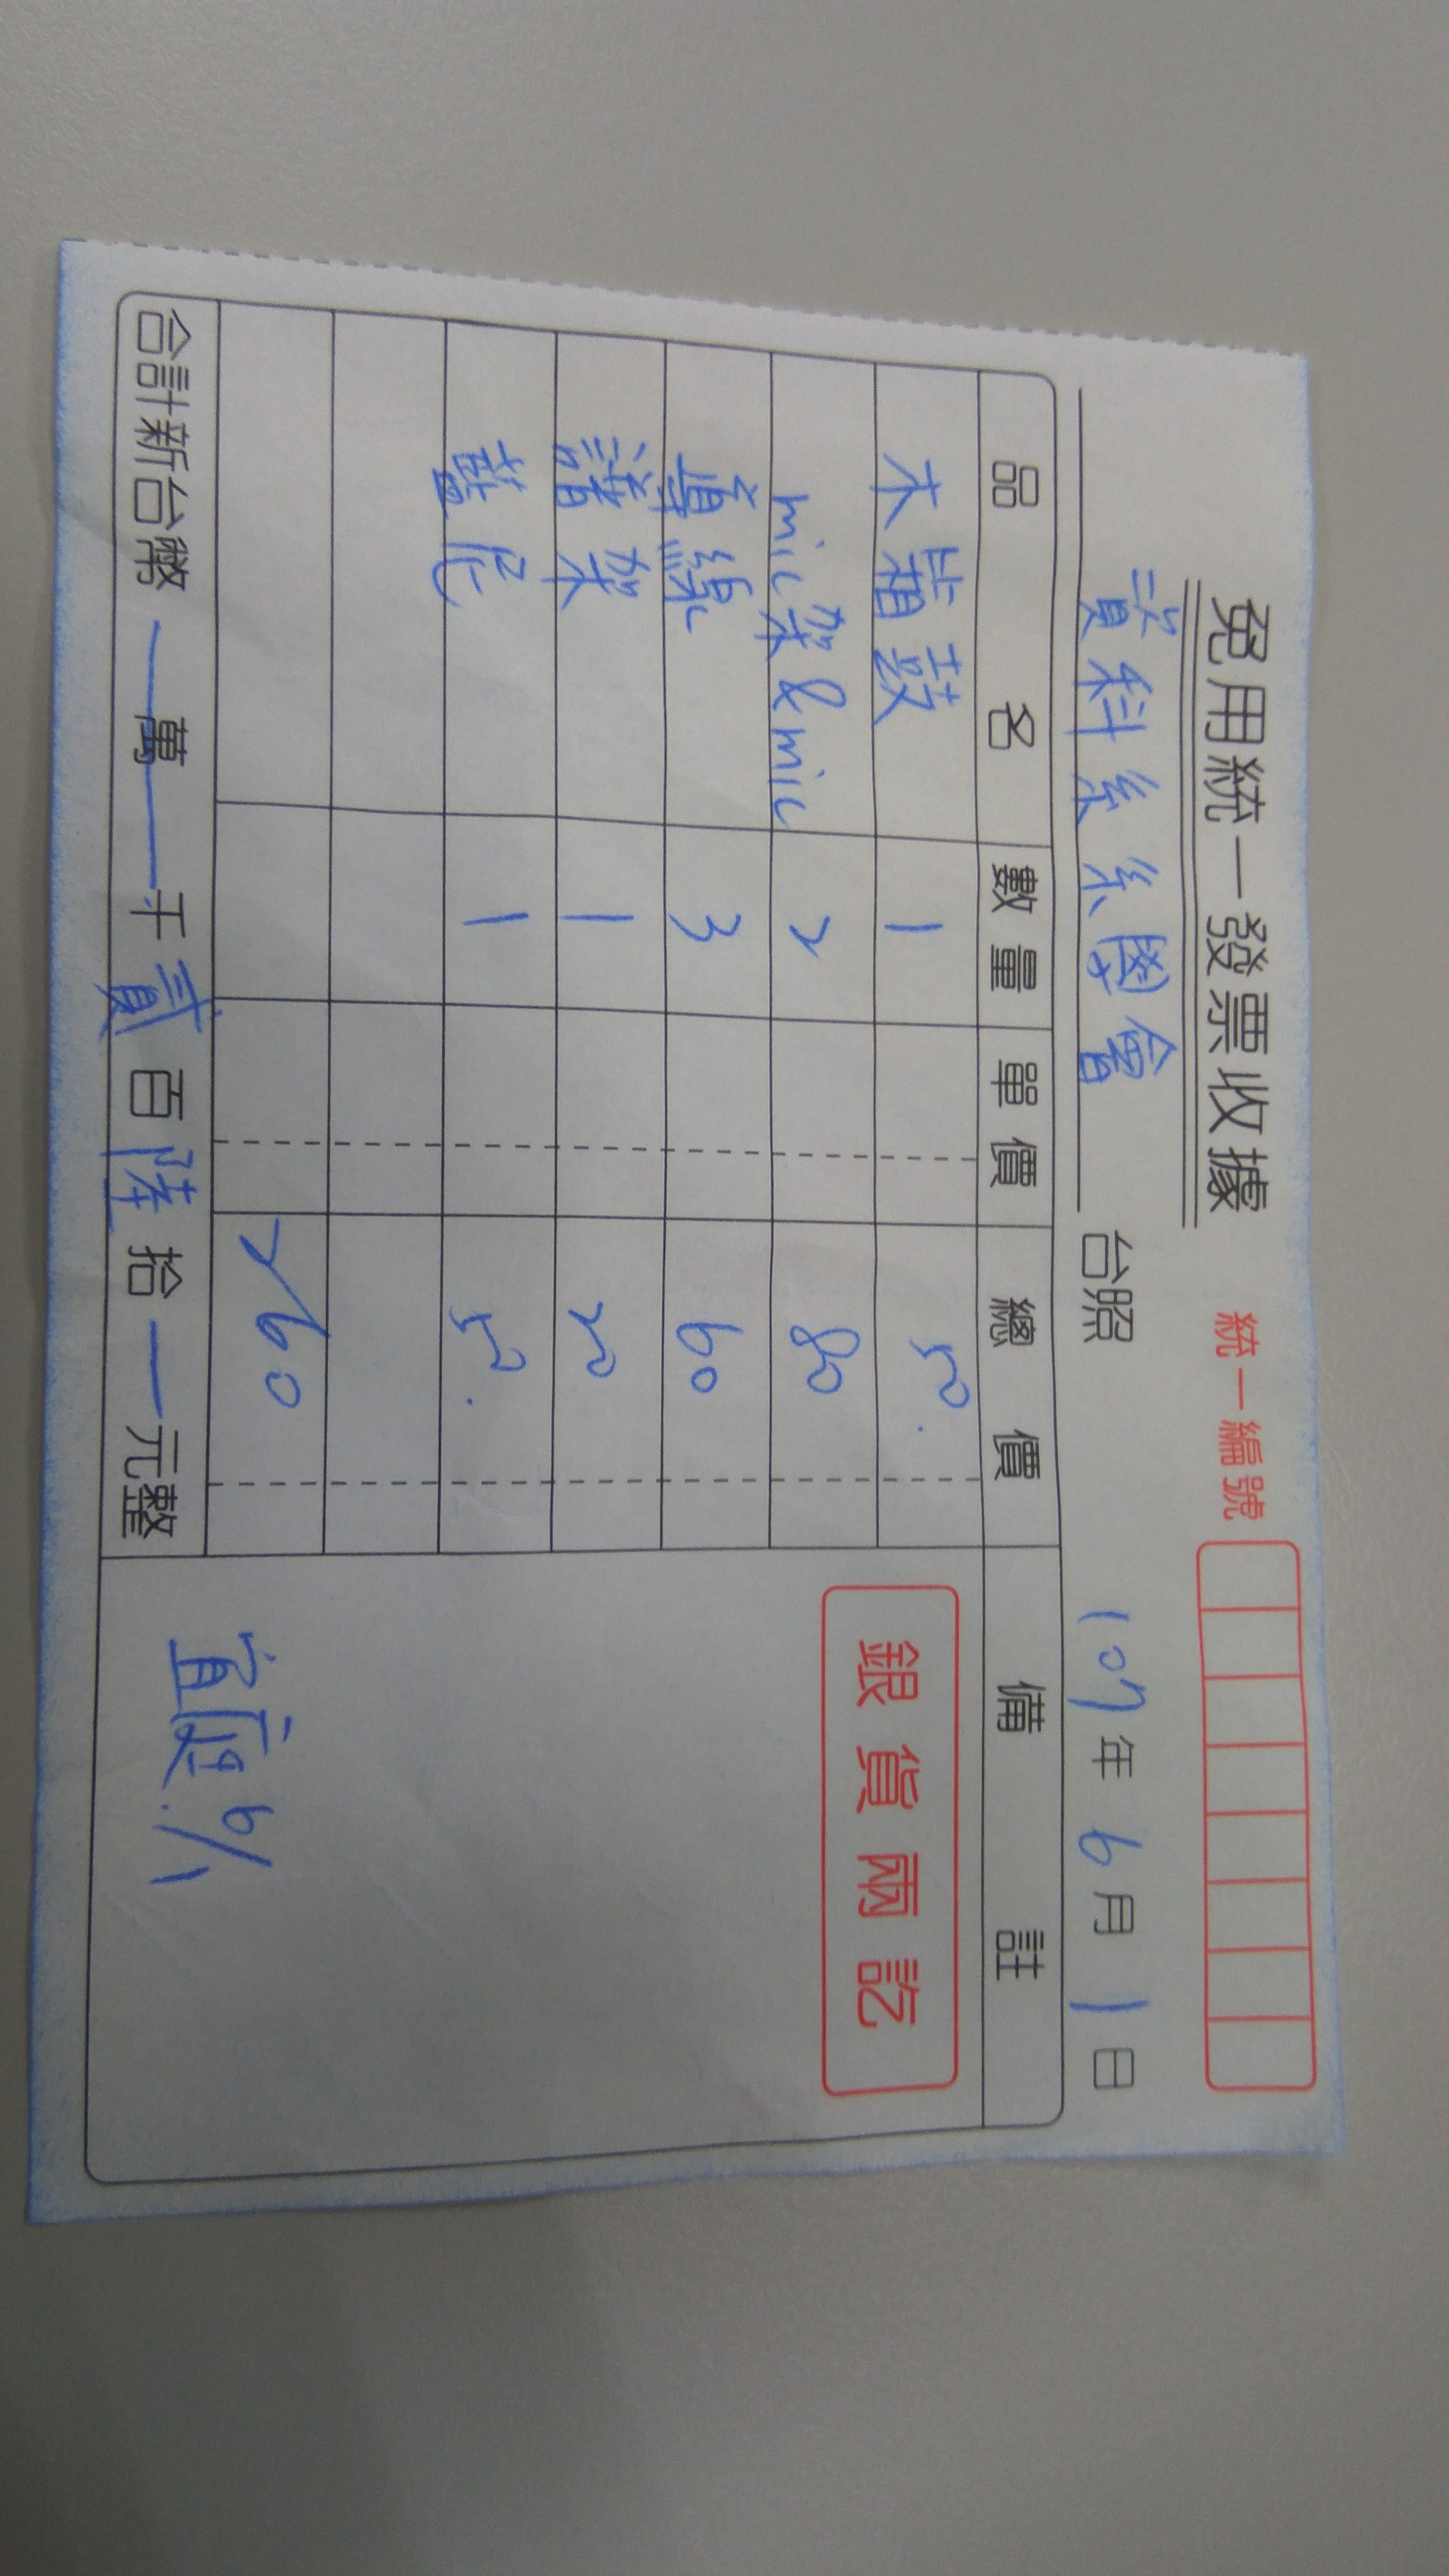 免用統一發票收據
統一編號
資科系系學會 台照 107年6月1日
品名 數量 單價 總價 備註
木箱鼓 1 50.
mic架&mic 2 80 銀貨兩訖
導線 3 60
譜架 1 20
藍芽 1 50.
260
合計新台幣 — 萬 — 千 貳 百 陸 拾 — 元整
6/1